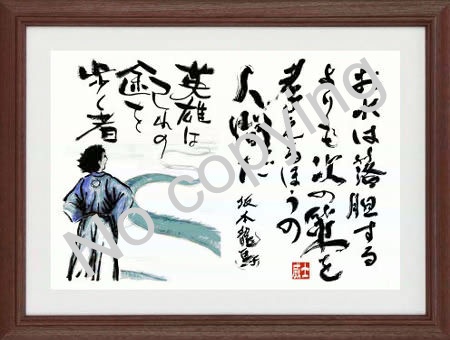 おれは落胆する
よりも次の策を
考えるほうの
人間だ
坂本龍馬
英雄は
己れの
途を
歩く者
No copying